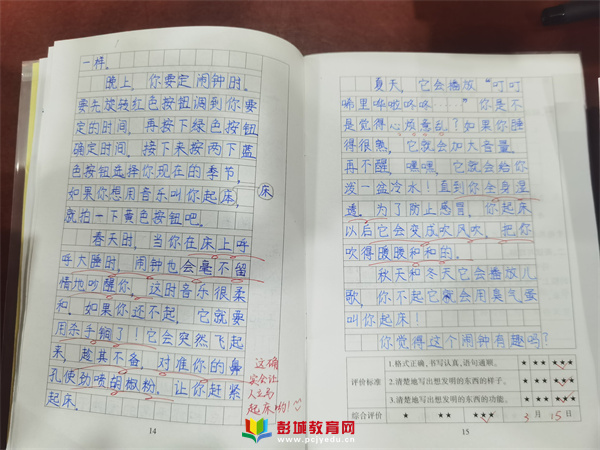 一样。
晚上，你要定闹钟时。
要先旋转红色按钮调到你要
定的时间，再按下绿色按钮
确定时间，接下来按两下蓝
色按钮选择你现在的季节，
如果你想用音乐叫你起床， 床
就拍一下黄色按钮吧。
春天时，当你在床上呼
呼大睡时，闹钟也会毫不留
情地吵醒你。这时音乐很柔
和。如果你还不起，它就要
用杀手锏了！它会突然飞起
来，趁其不备，对准你的鼻
孔使劲喷胡椒粉，让你赶紧
起床。
这确
实会让
人立马
起床哟！
14
夏天，它会播放“叮叮
哪里哗啦咚咚……”你是不
是觉得心烦意乱？如果你睡
得很熟，它就会加大音量，
再不醒，嘿嘿，它就会给你
泼一盆冷水！直到你全身湿
透。为了防止感冒，你起床
以后它会变成吹风吹，把你
吹得暖暖和和的。
秋天和冬天它会播放儿
歌，你不起它就会用臭气蛋
叫你起床！
你觉得这个闹钟有趣吗？
评价标准
1.格式正确，书写认真，语句通顺。 ★ ★★ ★★★
2.清楚地写出想发明的东西的样子。 ★ ★★ ★★★
3.清楚地写出想发明的东西的功能。 ★ ★★ ★★★
综合评价 ★ ★★ ★★★ 3月15日
15
彭城教育网
www.pcjyedu.cn